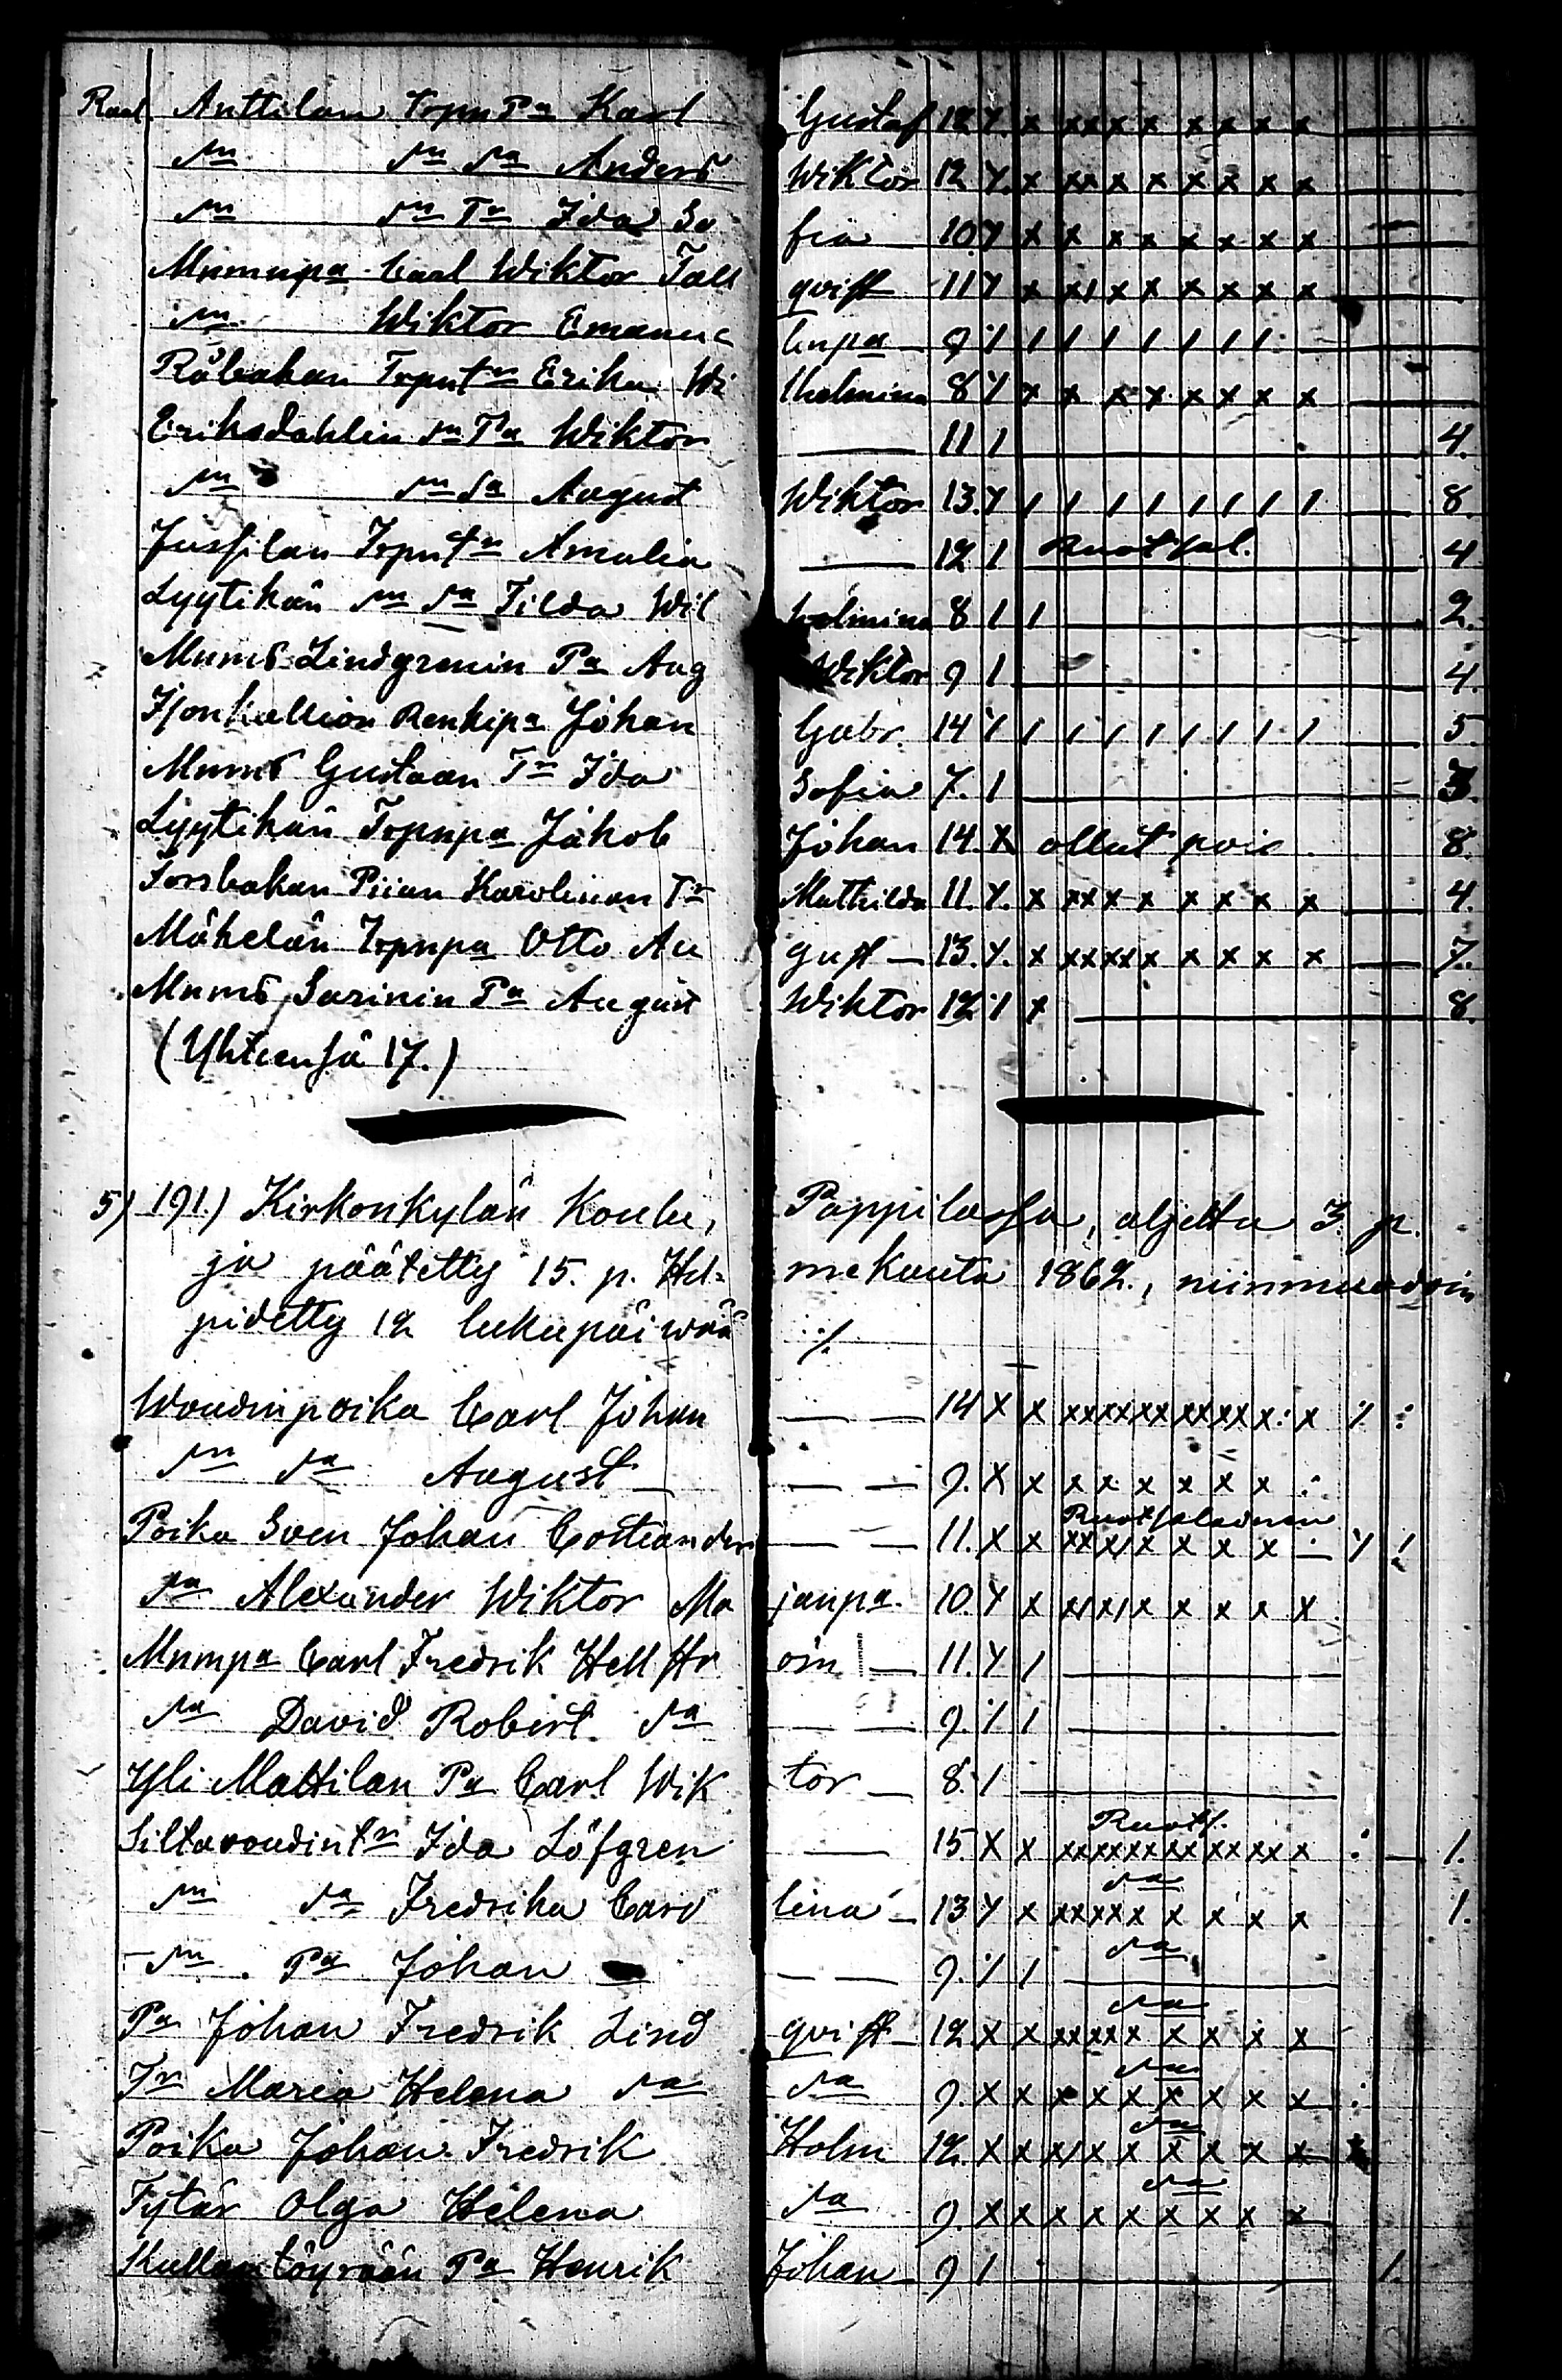 Raal Anttilan Torpn Pa Karl Gustaf 12 Y. x xx x x x x x x
sm sm sa Anders Wiktor 12 Y. x xx x x x x x x
sm sm Tr Ida So fia 10 Y x x x x x x x x
Mnmupa Carl Wiktor Tall qvist 11 Y x x/ x x x x x x
sm Wiktor Emanue linpa 9 / / / / / / / / /
Råbakan Torpntr Erika Wi lhelmina 8 Y x x x x x x x x
Eriksdahlin sm Pa Wiktor — 11 / 4.
sm sm sa August Wiktor 13. Y / / / / / / / / 8.
Jussilan Torpntr Amalia — 12 / Ruotsal. 4
Lyytikän sm sa Tilda Wil helmina 8 / / 2.
Mnms Lindgrenin Pa Aug Wiktor 9 / 4.
Isonkallion Renkipa Johan Gabr. 14 Y / / / / / / / / 5
Mnms Gustaan Tr Ida Sofia 7. / 3.
Lyytikän Torpnpa Jakob Johan 14. X ollut pois 8.
Forsbakan Piian Karolinan Tr Mathilda 11. Y. x xx x x x x x x 4.
Mäkelän Torpnpa Otto Au gust — 13. Y. x xx xx x x x x x 7.
Mnms Sarinin Pa August Wiktor 12 / x 8.
(Yhteensä 17.)
5) 191.) Kirkonkylän Koulu, Pappilassa, aljettu 3. p.
ja päätetty 15. p. Hel= mekuuta 1862., niinmuodoin
pidetty 12 lukupäiwää ./.
Woudinpoika Carl Johan — — 14 X x xx xx xx xx xx x x
sm sa August — — 9. X x x x x x x x
Ruotsalainen
Poika Sven Johan Costiander — — 11. X x xx x/ x x x x
sa Alexander Wiktor Ma janpa. 10. Y x x/ x/ x x x x x
Mnmpa Carl Fredrik Hell str öm — 11. Y /
sa David Robert sa — — 9. / /
Yli Mattilan Pa Carl Wik tor — 8. /
Ruots.
Siltavoudintr Ida Löfgren — 15. X x xx xx xx xx xx x x 1.
sa
sm sa Fredrika Caro lina — 13 Y x xx xx x x x x x 1.
sa
sm Pa Johan — — 9. / /
sa
Pa Johan Fredrik Lind qvist — 12 X x xx xx x x x x x
sa
Tr Maria Helena sa sa 9. X x x x x x x x x
sa
Poika Johan Fredrik Holm 12. X x x/ x x x x x x
sa
Tytär Olga Helena sa 9. X x x x x x x x x
Kullantöyrään Pa Henrik Johan — 9 / 1.